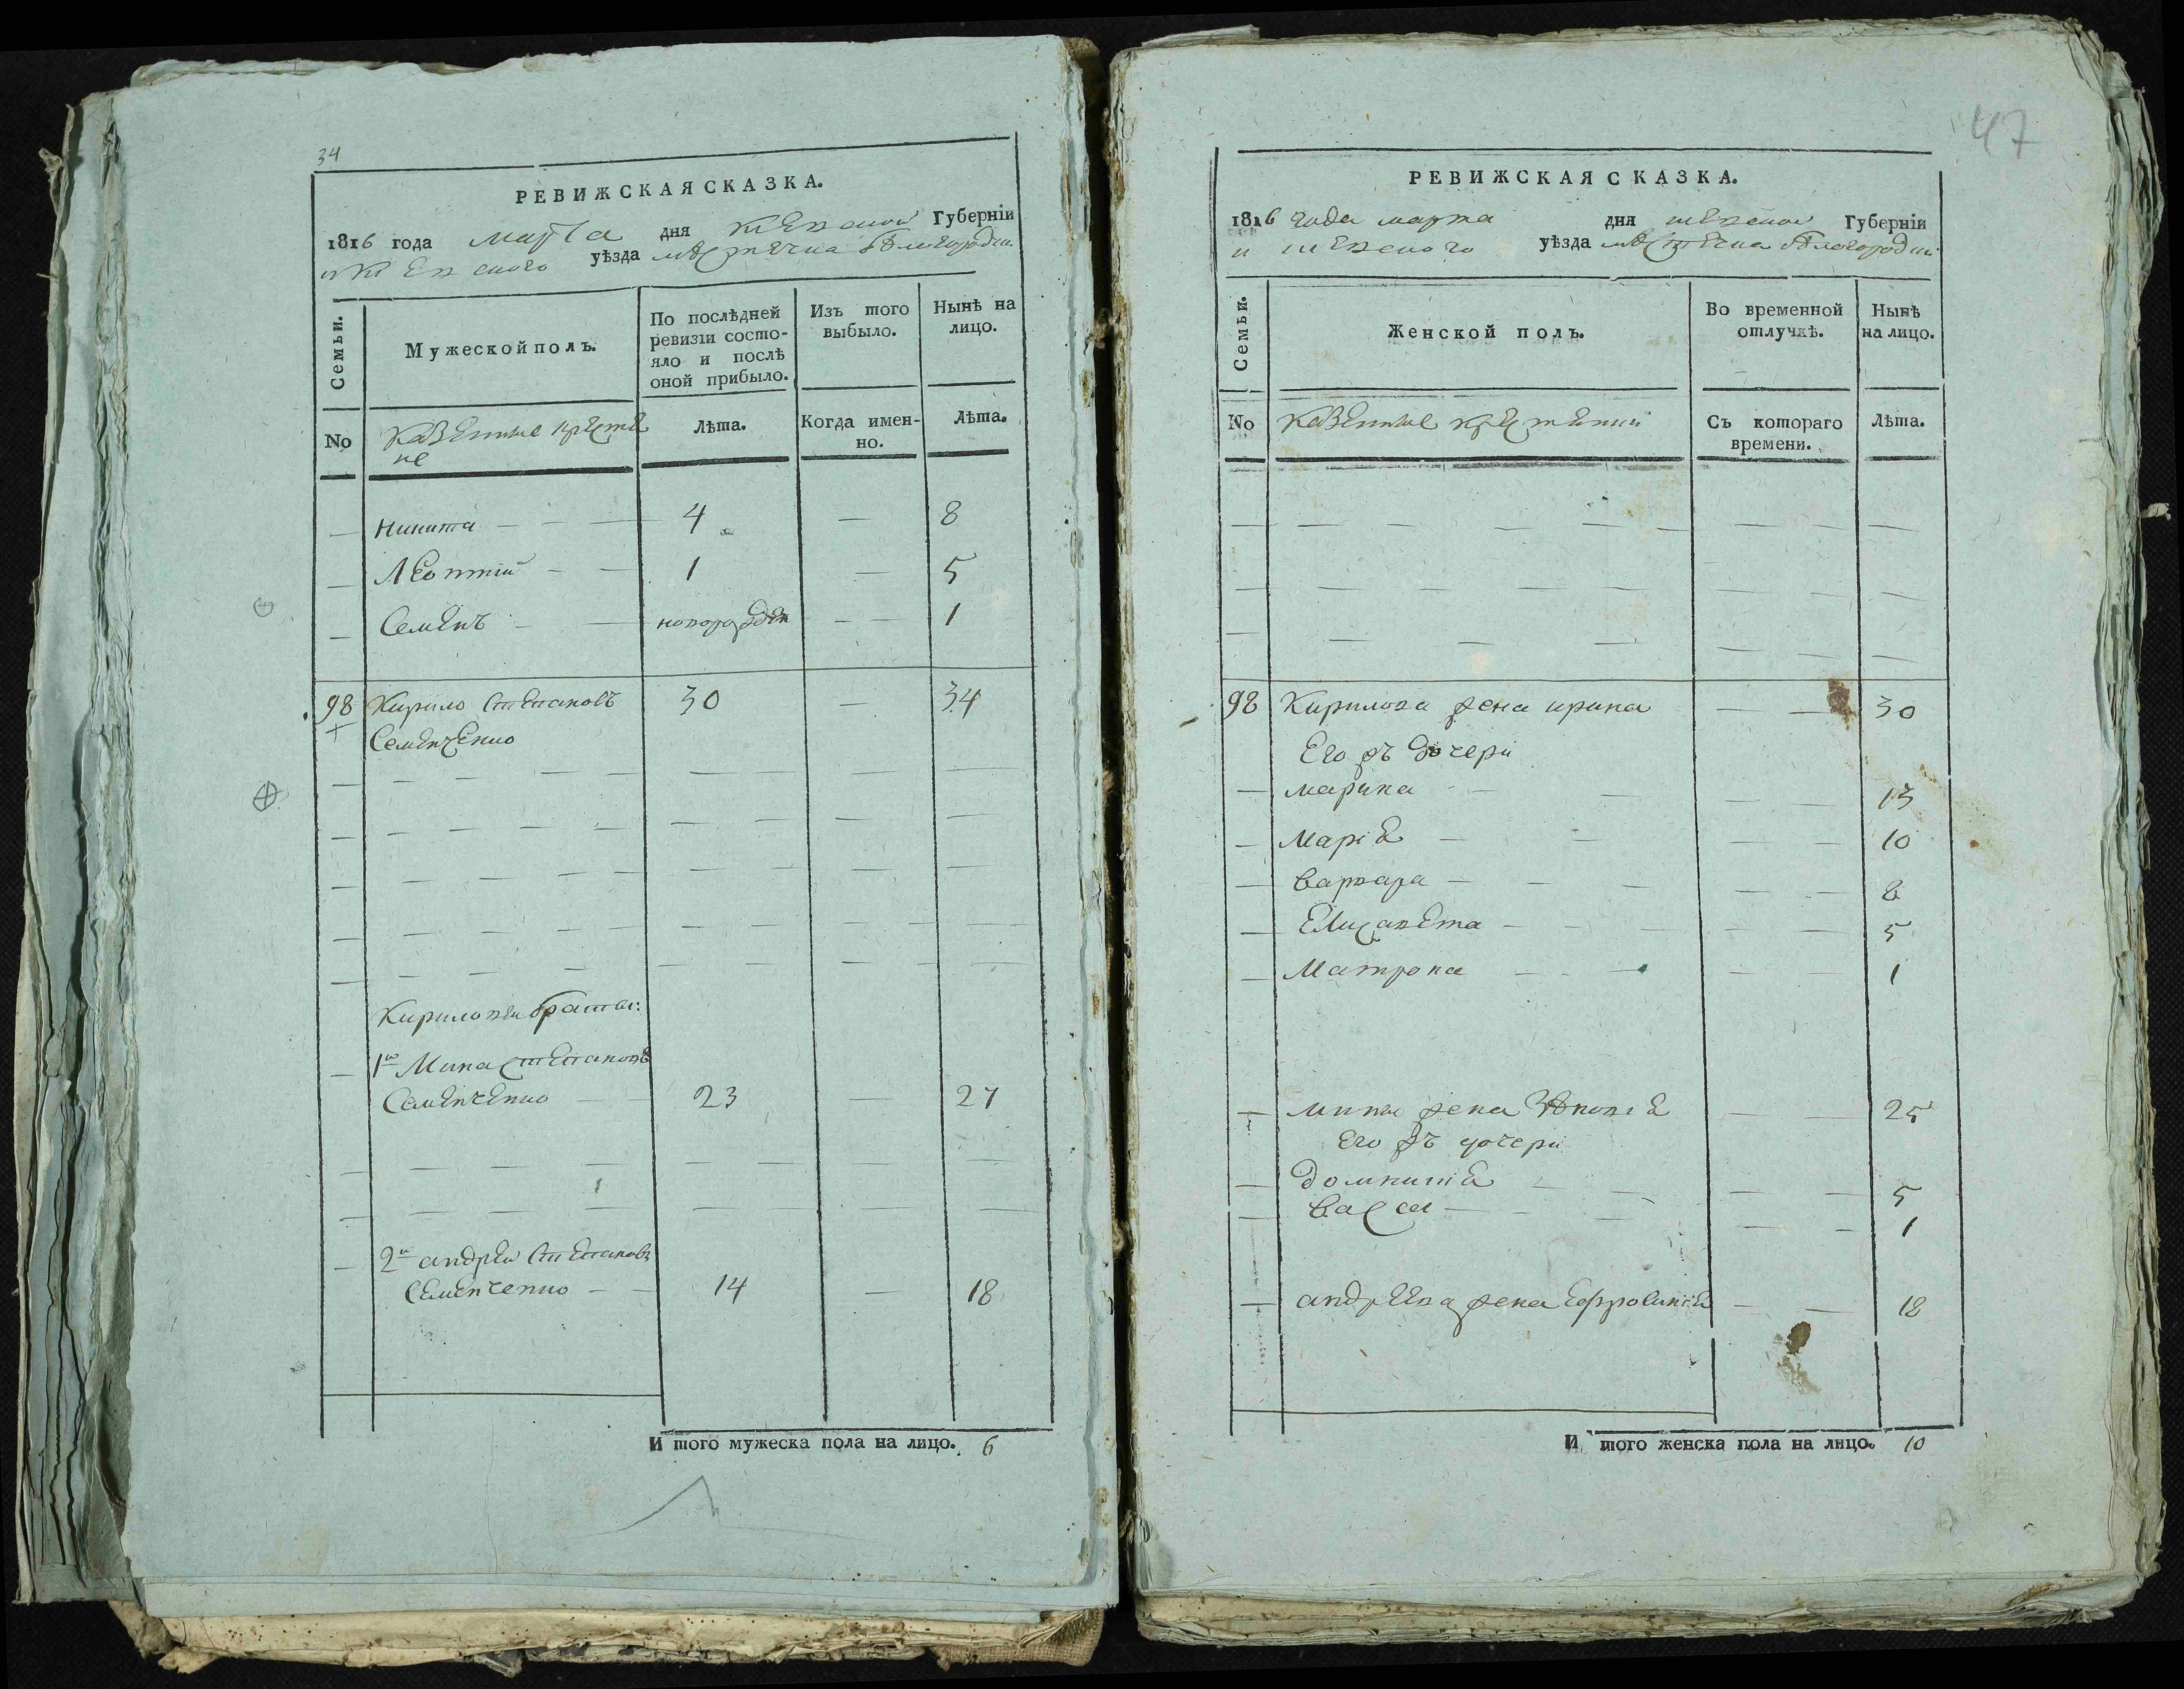 34
РЕВИЖСКАЯ СКАЗКА.
1816 года марта дня Киевской Губерніи
и Киевского уѣзда мѣстечка бѣлогородки
Семьи.
Мужеской полъ.
По послѣдней ревизіи состо-
яло и послѣ
оной прибыло.
Изъ того
выбыло.
Нынѣ на
лицо.
No
Казенные крестя
не
Лѣта.
Когда имен-
но.
Лѣта.
— никита — 4 — 8
— Леонтій — 1 — 5
— Семенъ — новорожден — 1
98 Кирило Степановъ 30 — 34
Семенченко
Кириловы братья:
1й Мина Степановъ
Семенченко — 23 27
2й андрей Степановъ
Семенченко — 14 — 18
И того мужеска пола на лицо. 6
47
РЕВИЖСКАЯ СКАЗКА.
1816 года марта дня киевской Губерніи
и киевского уѣзда мѣстечка бѣлогородки
Семьи.
Женской полъ.
Во временной
отлучкѣ.
Нынѣ
на лицо.
No
Казенные крестянки
Съ котораго
времени.
Лѣта.
98 Кирилова жена ирина — 30
Его жъ дочери
— марина — 13
— Маріа — 10
— варвара — 8
— Елисавета — 5
— Матрона — 1
— мины жена — 25
Его жъ дочери
— домникіа — 5
— васса — 1
— андреева жена Ефросиніа — 18
И того женска пола на лицо. 10